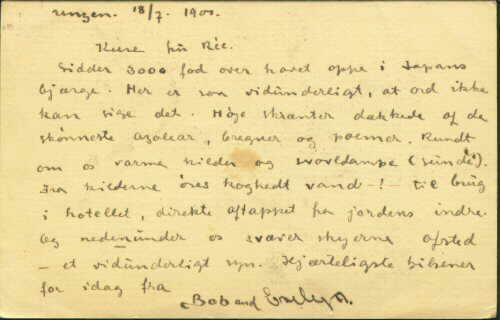 unzen. 18/7. 1900.
Kære fru Rée.
Sidder 3000 fod over havet oppe i Japans
bjærge. Her er saa vidunderligt, at ord ikke
kan sige det. Høje skrænter dækkede af de
skønneste azalear, bregner og Rundt
om os varme kilder og svovldampe (sunde).
Fra kilderne øses koghedt vand -!- til brug
i hotellet, direkte aftappet fra jordens indre.
Og nedenunder os svæver skyerne afsted
- et vidunderligt syn. Hjærteligste hilsener
for idag fra
Bob and